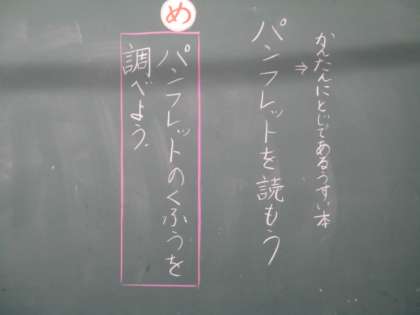 かんたんにとじてあるうすい本
⇒
パンフレットを読もう
め
パンフレットのくふうを
調べよう。